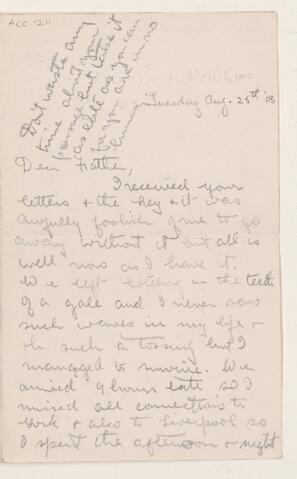 ACC:1211
Don't waste any
time about your
passage but take it
as late as you can
for you are in no
hurry
Tuesday Aug. 25th '08
Dear Father,
I received your
letters & the key & it was
awfully foolish of me to go
away without it but all is
well now as I have it.
We left in the teeth
of a gale and I never saw
such waves in my life &
oh such a tossing but I
managed to survive. We
arrived 9 hours late so I
missed all connections to
York & also to Liverpool so
I spent the afternoon & night